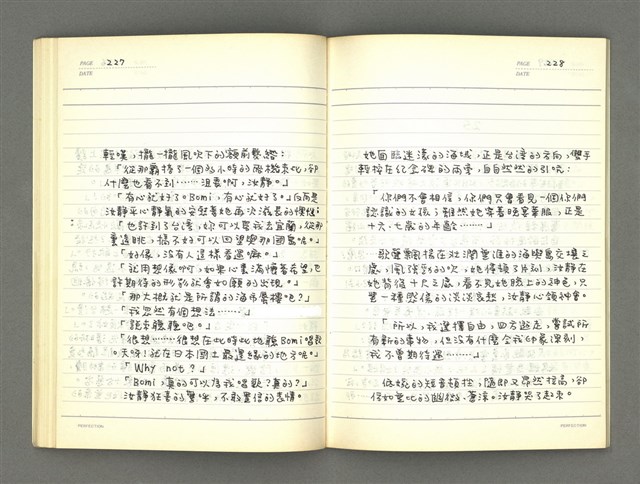 PAGE 227
DATE
輕嘆，攏一攏風吹下的額前髮綹：
「從那霸搭了一個多小時的飛機來此，卻
什麼也看不到……沮喪啊，汝靜。」
「有心就好了。Bomi，有心就好了。」反而是
汝靜平心靜氣的安慰著她再次滋長的懊惱：
「也許到了台灣，妳可以帶我去宜蘭，從那
裏遠眺，搞不好可以回望與那國島呢。」
「好像，沒有人這樣看過啊。」
「就用想像啊，如果心裏滿懷著希望，也
許期待的形影就會如願的出現。」
「那大概就是所謂的海市蜃樓吧？」
「我忽然有個想法……」
「說來聽聽吧。」
「很想……很想在此時此地聽Bomi唱歌
。天呀！就在日本國土最邊緣的地方呢。」
「Why not？」
「Bomi，真的可以為我唱歌？真的？」
汝靜狂喜的驚呼，不敢置信的表情。
PERFECTION
PAGE 228
DATE
她面臨迷濛的海域，正是台灣的方向，雙手
輕按在紀念碑的兩旁，自自然然的引吭：
「你們不會相信，你們只會看見一個你們
認識的女孩；雖然她穿著晚宴華服，正是
十六、七歲的年齡……」
歌聲飄揚在壯濶無涯的海與島交壤之
處，風強勁的吹，她停頓了片刻，汝靜在
她背後十尺之處，看不見她臉上的神色，只
覺一種懸傷的淡淡哀愁，汝靜心領神會。
「所以，我選擇自由，四方遊走，嘗試所
有新的事物，但沒有什麼令我印象深刻，
我不曾期待過………」
低婉的短音頓挫，隨即又昂然拉高，卻
何如無比的幽微、蒼涼。汝靜哭了起來。
PERFECTION